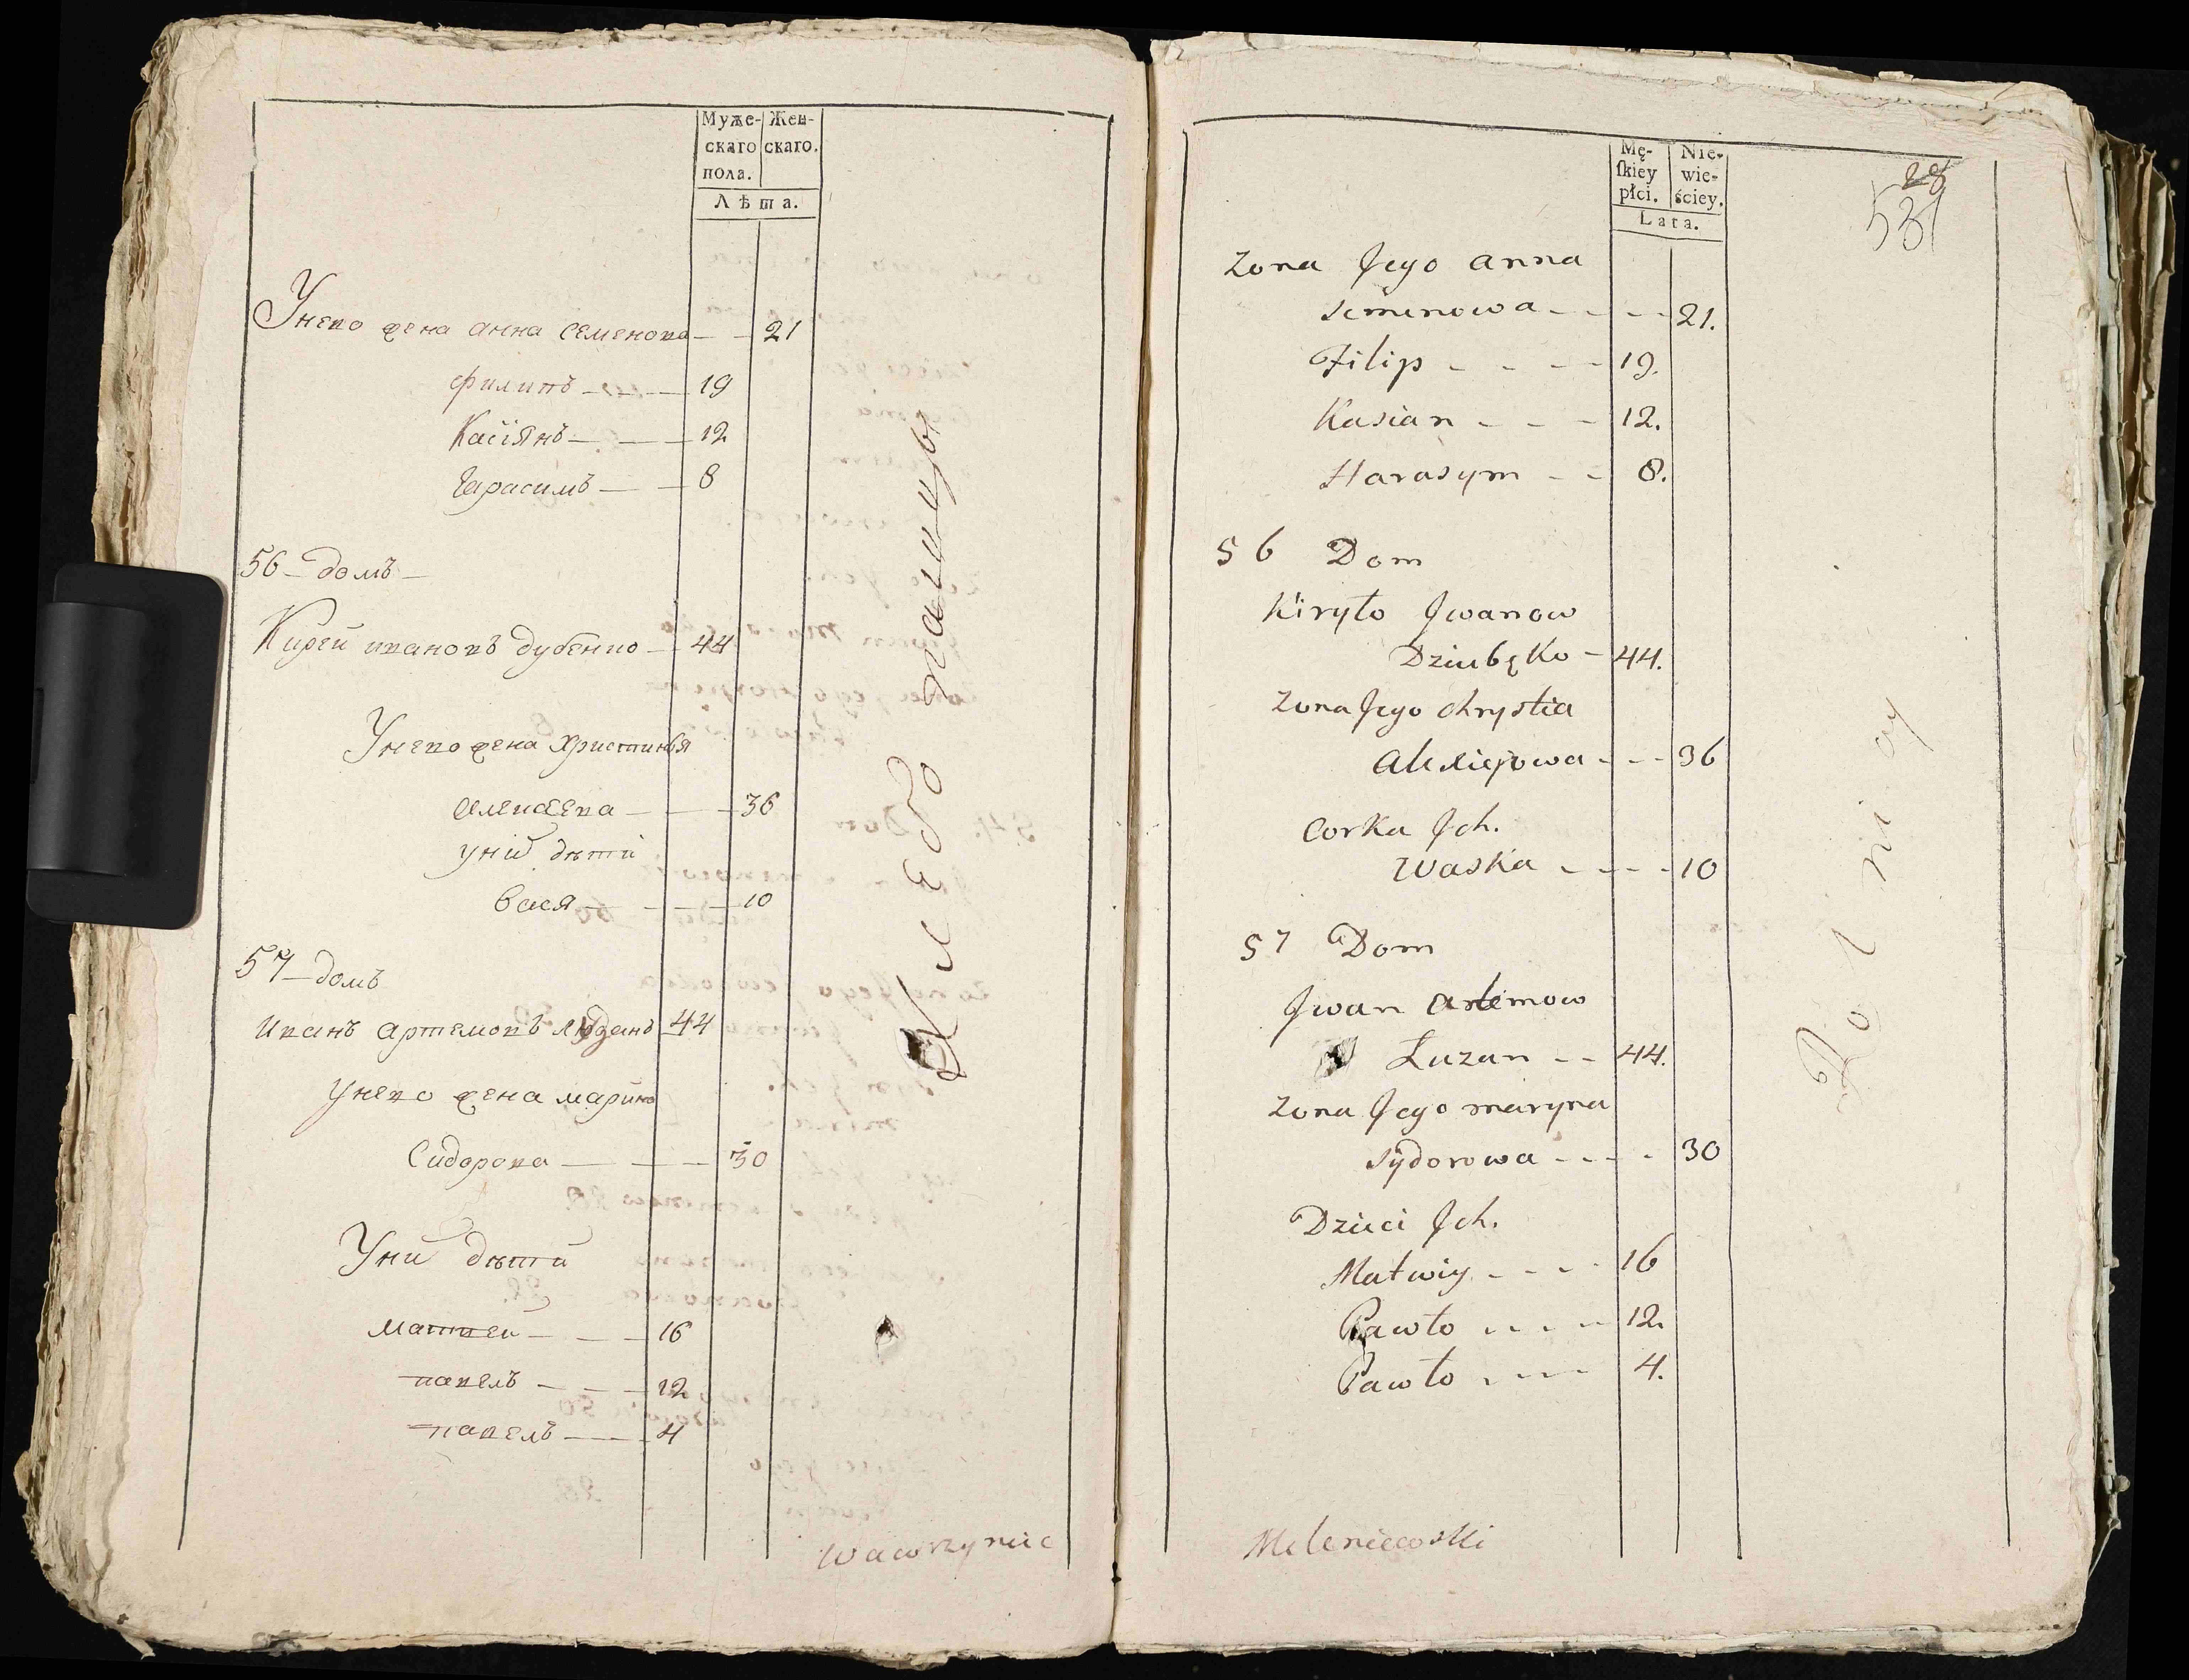 Муже- Жен-
скаго скаго.
пола.
Лѣта.
Унего жена анна Семенова — — 21
филипъ — — 19
Касіянъ — — 12
Гарасимъ — — 8
56 — домъ —
Кирей ивановъ дубенко — 44
Унего жена Христинья
Алексеева — — — 36
уний дѣти
Вася — — — 10
57 — домъ
иванъ артемовъ людзанъ 44
Унего жена марина
Сидорова — — — 30
Уний дѣти
Матвей — — — 16
павелъ — — — 12
павелъ — — 4
Хлебопашцы
Wawrzyniec
Mę- Nie-
ſkiey wie-
płci. ściey.
Lata.
28
531
Zona Jego anna
Semenowa - - - - 21.
Filip - - - - 19.
Kasian - - - 12.
Harasym - - 8.
56 Dom
Kiryło Jwanow
Dziubęko - 44.
Zona Jego chrystia
alexiejowa - - - 36
Corka Jch.
Waska - - - - 10
57 Dom
Jwan artemow
Luzan - - 44.
Zona Jego maryna
Sydorowa - - - - 30
Dzieci Jch.
Matwiy - - - - 16
Pawło - - - - 12.
Pawło - - - - 4.
Rolnicy
Meleniewski